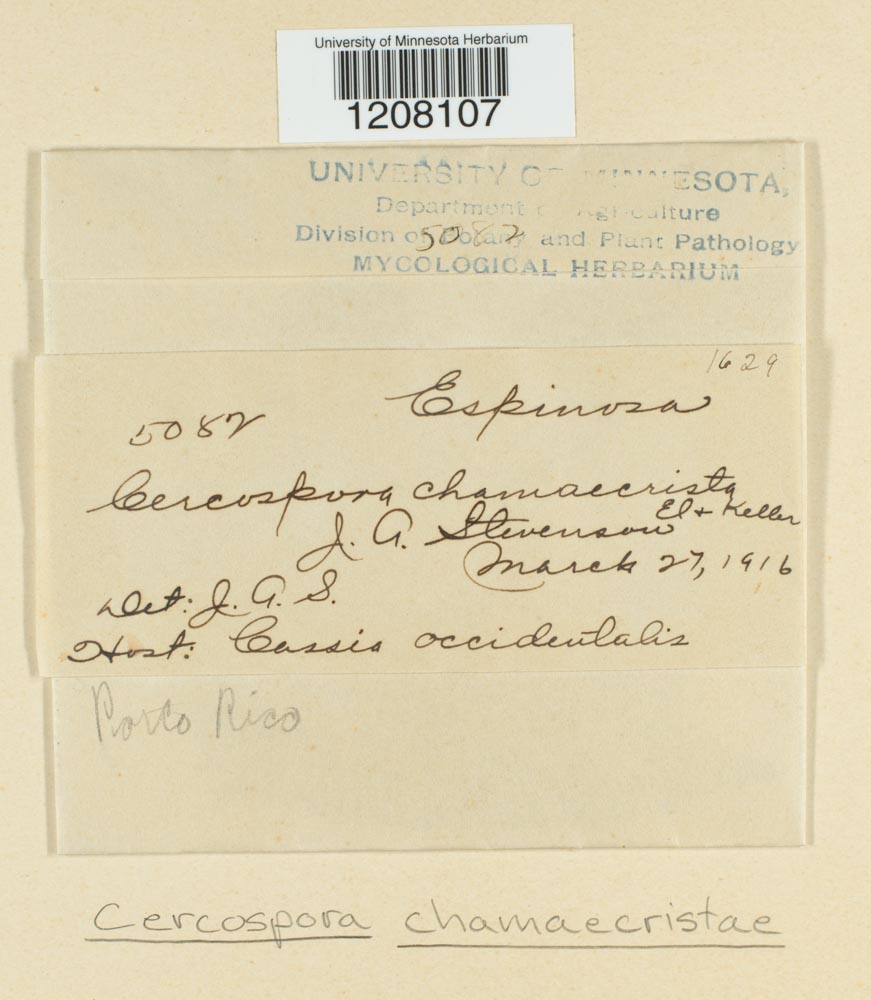 University of Minnesota Herbarium
1208107
UNIVERSITY OF MINNESOTA,
Department of Agriculture
Division of Botany and Plant Pathology
5082
MYCOLOGICAL HERBARIUM
1629
Espinosa
5082
Cercospora chamaecrista
El + Keller
J. A. Stevenson
March 27, 1916
Det: J. A. S.
Host: Cassia occidentalis
Porto Rico
Cercospora chamaecristae